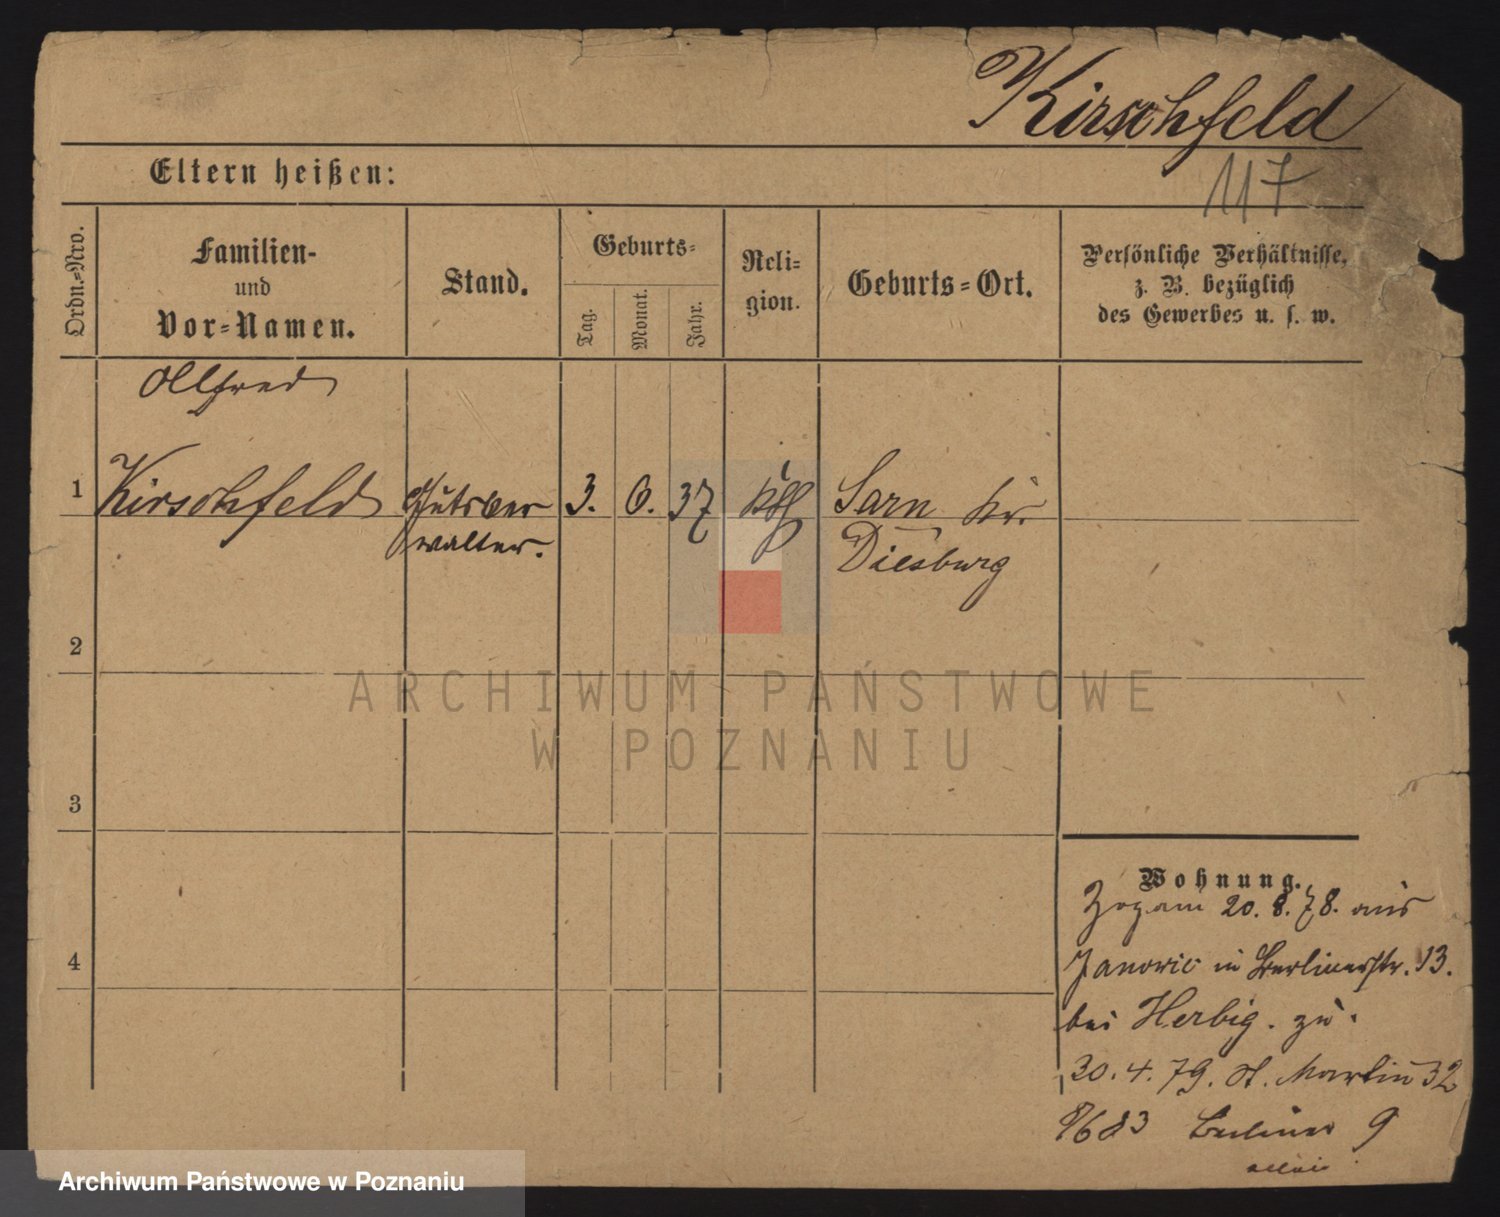 Kirschfeld
117
Eltern heißen:
Ordn.-Nro.
Familien-
und
Vor-Namen.
Stand.
Geburts-
Tag.
Monat.
Jahr.
Reli-
gion.
Geburts-Ort.
Persönliche Verhältnisse,
z. B. bezüglich
des Gewerbes u. s. w.
Alfred
1 Kirschfeld Gutsver 3. 6. 37 kth Sarn Kr.
walter. Diesburg
2
ARCHIWUM PAŃSTWOWE
W POZNANIU
3
4
Wohnung.
Zog am 20. 8. 78. aus
Janowic in Berlinerstr. 13.
bei Herbig. zu.
30. 4. 79. St. Martin 32
83 Berliner 9
Archiwum Państwowe w Poznaniu